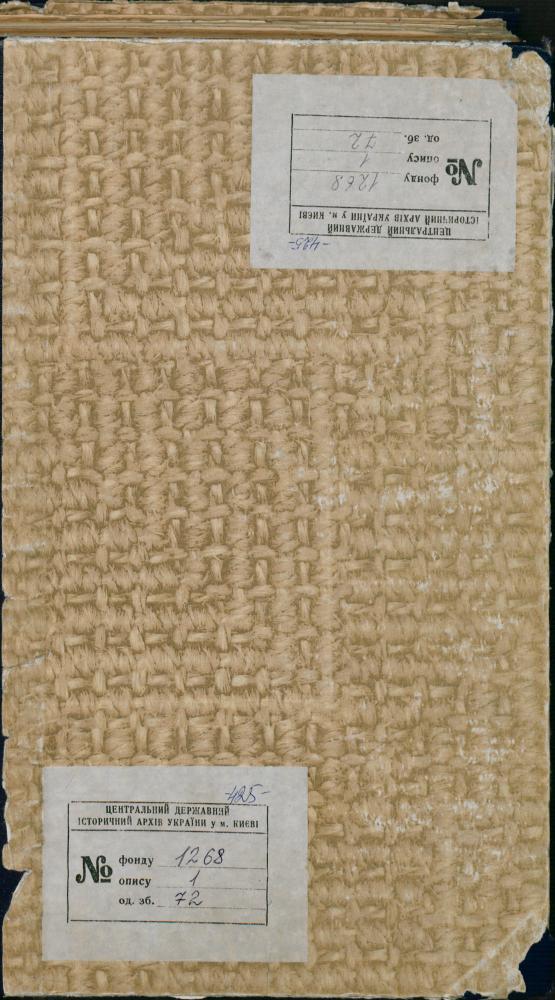 -425-
ЦЕНТРАЛЬНИЙ ДЕРЖАВНИЙ
ІСТОРИЧНИЙ АРХІВ УКРАЇНИ у м. КИЄВІ
№ фонду 1268
опису 1
од. зб. 72
-425-
ЦЕНТРАЛЬНИЙ ДЕРЖАВНИЙ
ІСТОРИЧНИЙ АРХІВ УКРАЇНИ у м. КИЄВІ
№ фонду 1268
опису 1
од. зб. 72